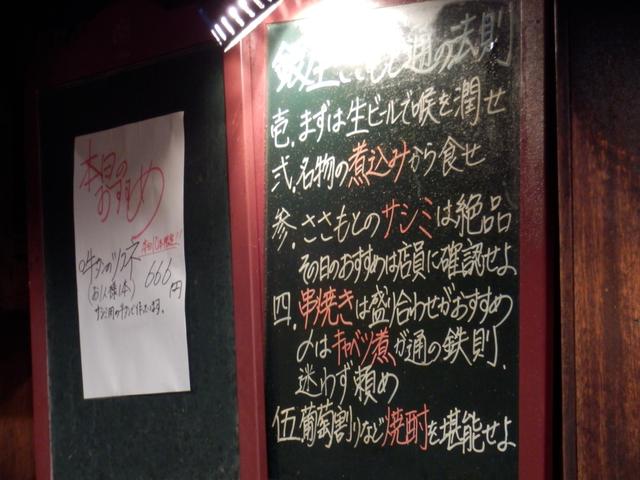 本日の
おすすめ
本日10本限定!!
牛タンのツクネ
(お1人様1本)
666円
サシミ用の牛タンで作ってます。
銀座ささもと通の法則
壱.まずは生ビールで喉を潤せ
弐.名物の煮込みから食せ
参.ささもとのサシミは絶品
その日のおすすめは店員に確認せよ
四.串焼きは盛り合わせがおすすめ
〆はキャベツ煮が通の鉄則.
迷わず頼め
伍葡萄割りなど焼酎を堪能せよ